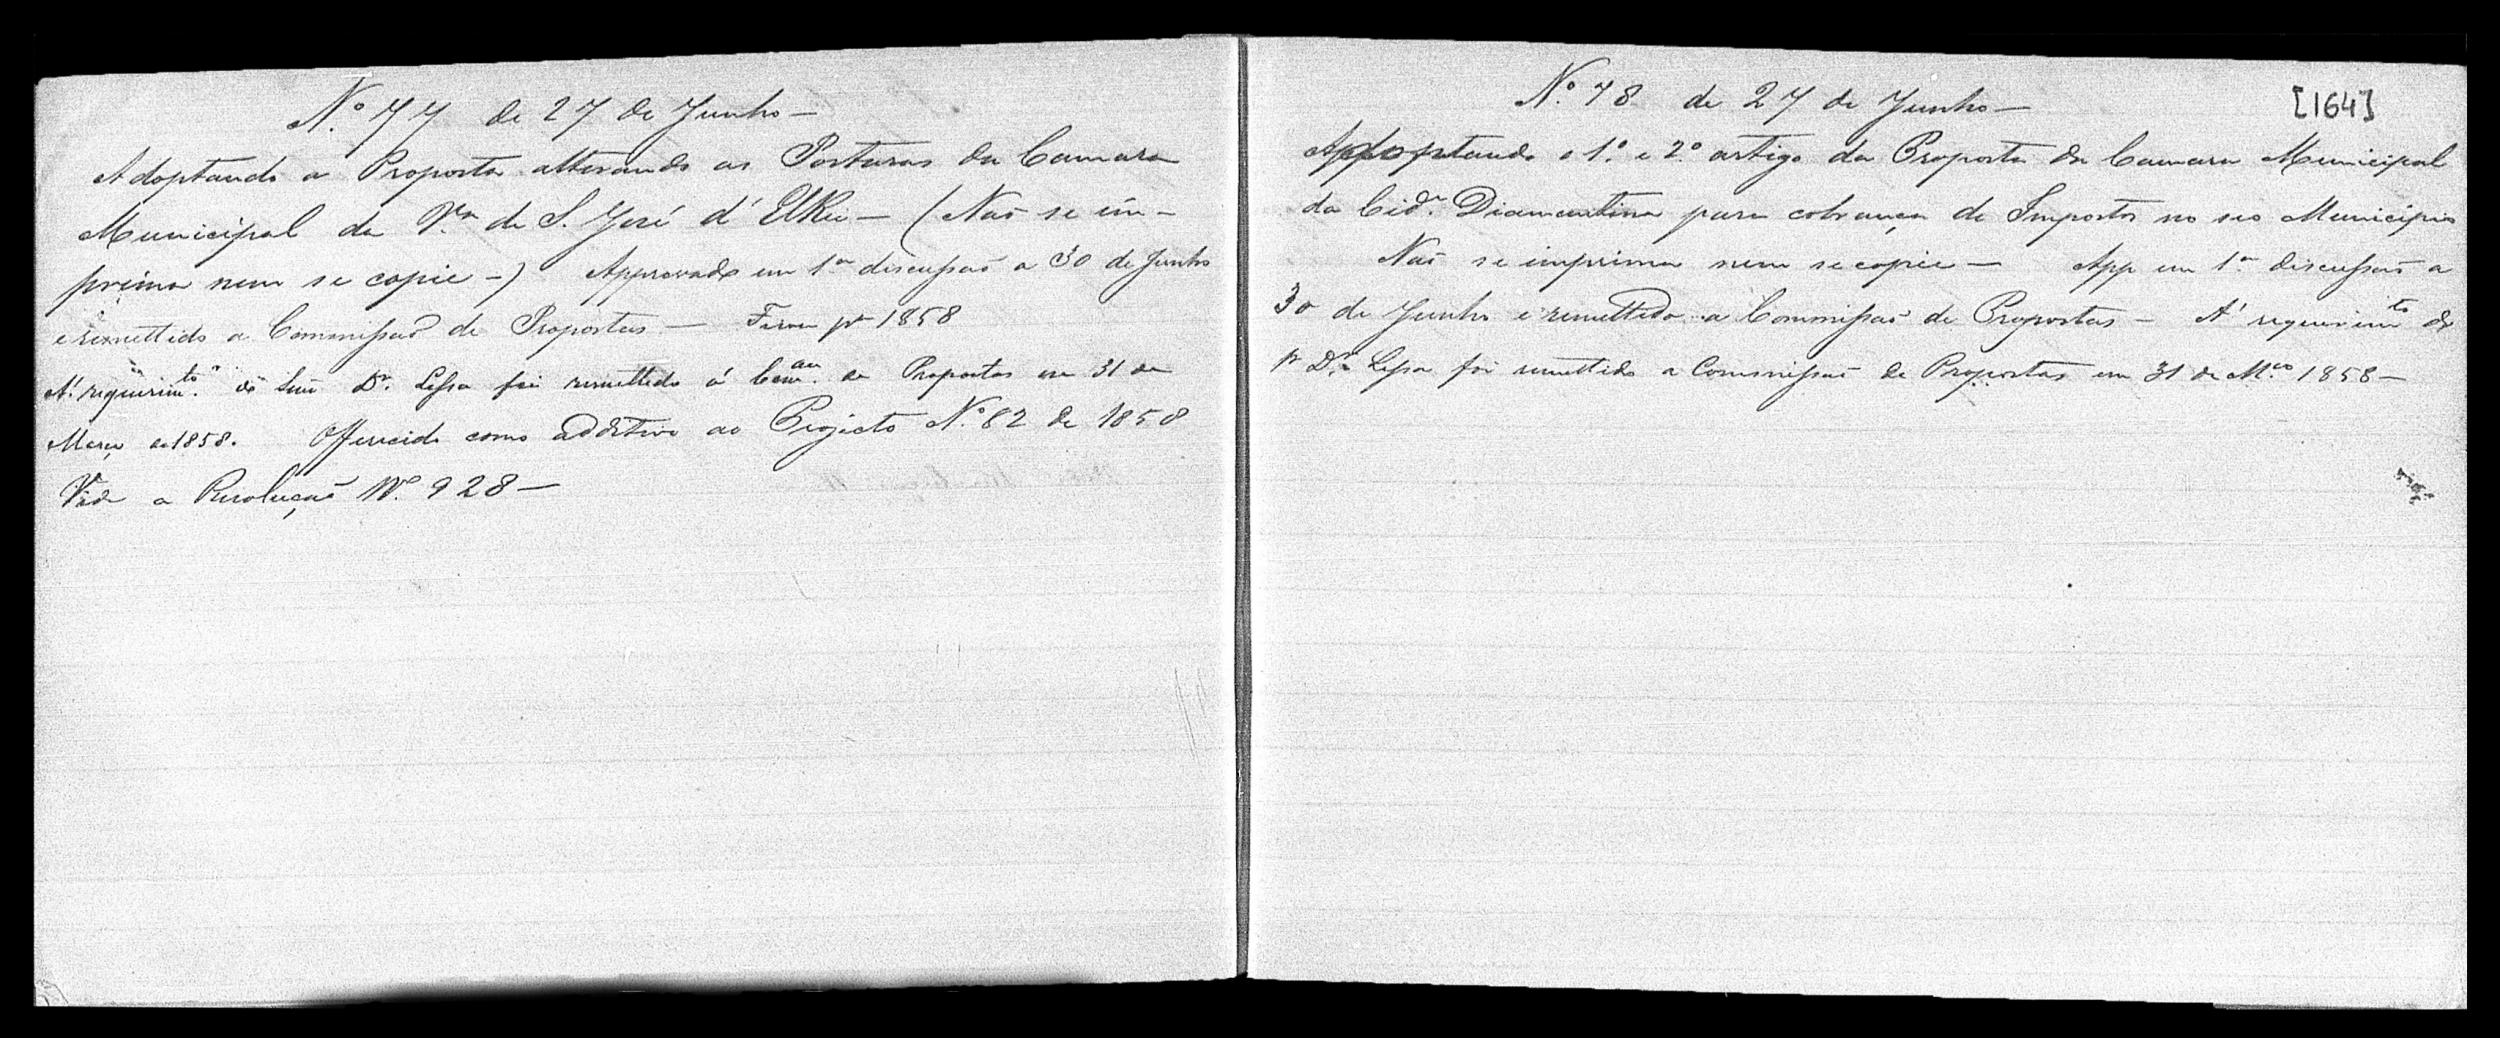 Nº 77 de 27 de Junho —
Adoptando a Proposta alterando as Posturas da Camara
Municipal da Vª de S. José d'ElRei — (Não se im-
prima nem se copie —) Approvado em 1ª discussão a 30 de Junho
e remettido a Commissão de Propostas — Ficou pª 1858
A' requerimto do Dr. Lessa foi remettido á Comam de Propostas em 31 de
Março de 1858. Offerecido como additivo ao Projecto Nº 82 de 1858
Vide a Resolução Nº 928 —
Nº 78 de 27 de Junho —
[164]
Adoptando o 1º e 2º artigo da Proposta da Camara Municipal
da Cidª Diamantina para cobrança de Impostos no seo Municipio
Não se imprima nem se copie — App em 1ª discussão a
30 de Junho e remettido a Commissão de Propostas — A' requerimto do
Dr Lessa foi remettido a Commissão de Propostas em 31 de Mço 1858 —